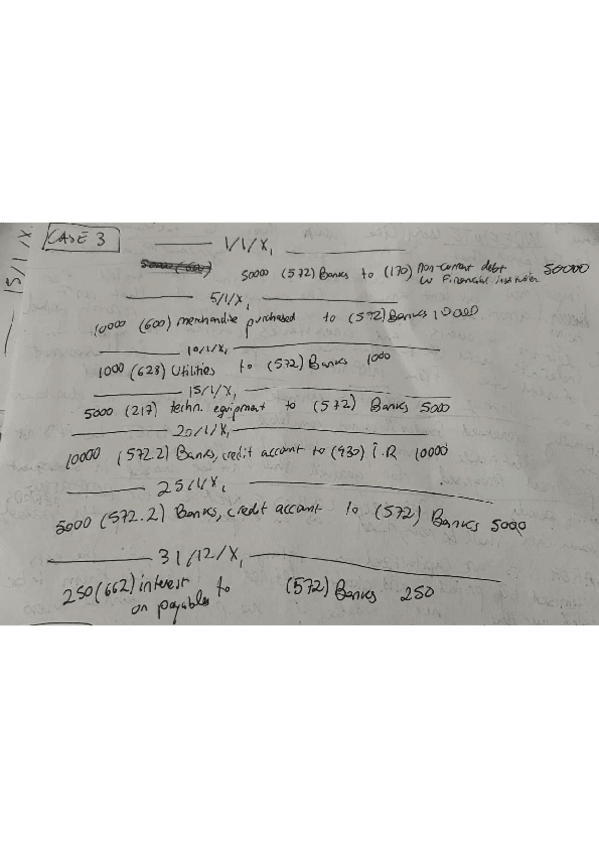 15/1/X
CASE 3
1/1/X1
50000 (600)
50000 (572) Banks to (170) non-current debt w Financial institution 50000
5/1/X1
10000 (600) merchandise purchased to (572) Banks 10000
10/1/X1
1000 (628) Utilities to (572) Banks 1000
15/1/X1
5000 (217) techn. equipment to (572) Banks 5000
20/1/X1
10000 (572.2) Banks, credit account to (430) I.R 10000
25/1/X1
5000 (572.2) Banks, credit account to (572) Banks 5000
31/12/X1
250 (662) interest on payables to (572) Banks 250